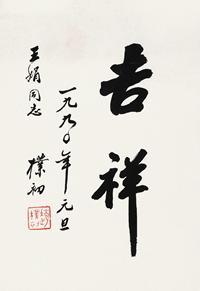 吉祥
一九九〇年元旦
王娟同志
樸初